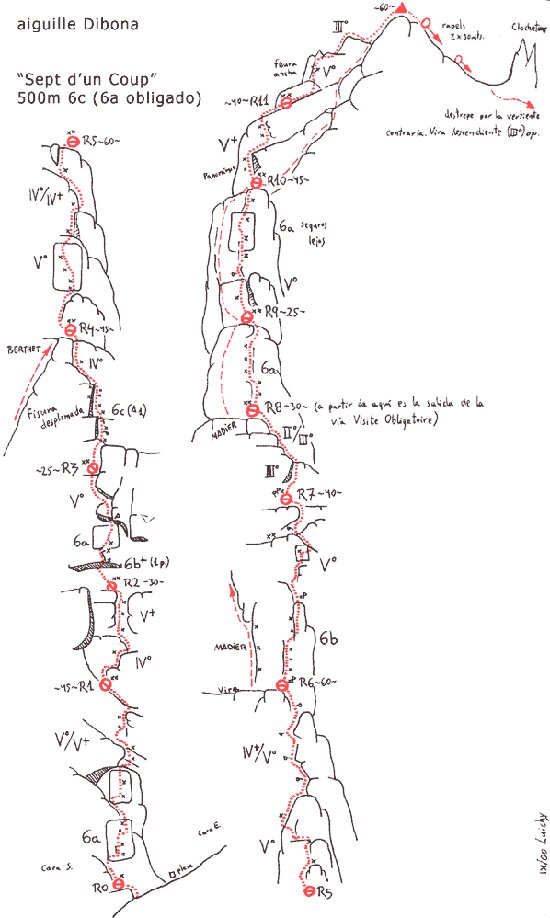 aiguille Dibona
"Sept d'un Coup"
500m 6c (6a obligado)
R5~60~
IV°/IV+
V°
R4~45~
BERTHET
IV°
Fisura
desplomada
6c (A1)
~25~R3
V°
6a
6b+ (1p)
R2~30~
V+
IV°
~45~R1
V°/V+
6a
Cara S.
Cara E.
R0
~60~
rapels
2x50mts.
Clocheton
III°
fisura
ancha
V°
~40~R11
destrepe por la vertiente
contraria. Vira descendiente (III°) ojo.
V+
Panorámico
R10~45~
6a seguros
lejos
V°
R9~25~
6a
R8~30~ (a partir de aquí es la salida de la
vía Visite Obligatoire)
MADIER
II°/III°
III°
R7~40~
V°
6b
MADIER
Vira
R6~60~
IV+/V°
V°
R5
IX/00 Luichy